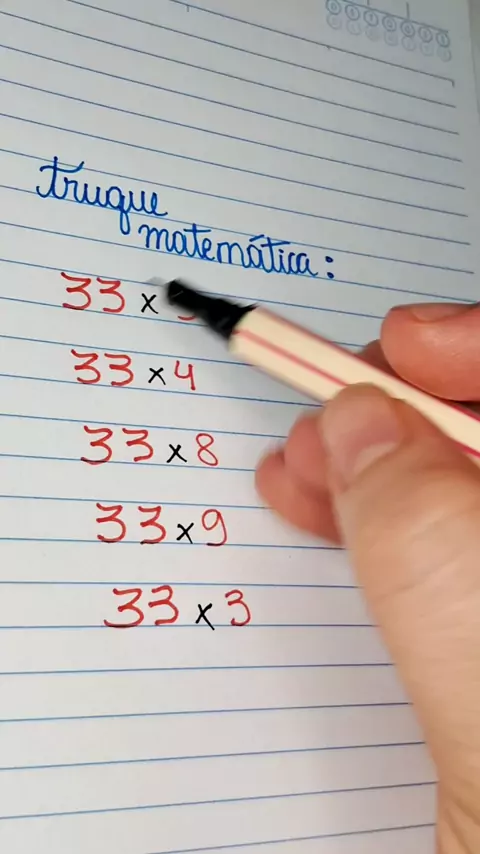 truque
matemática:
33 ×
33 × 4
33 × 8
33 × 9
33 × 3